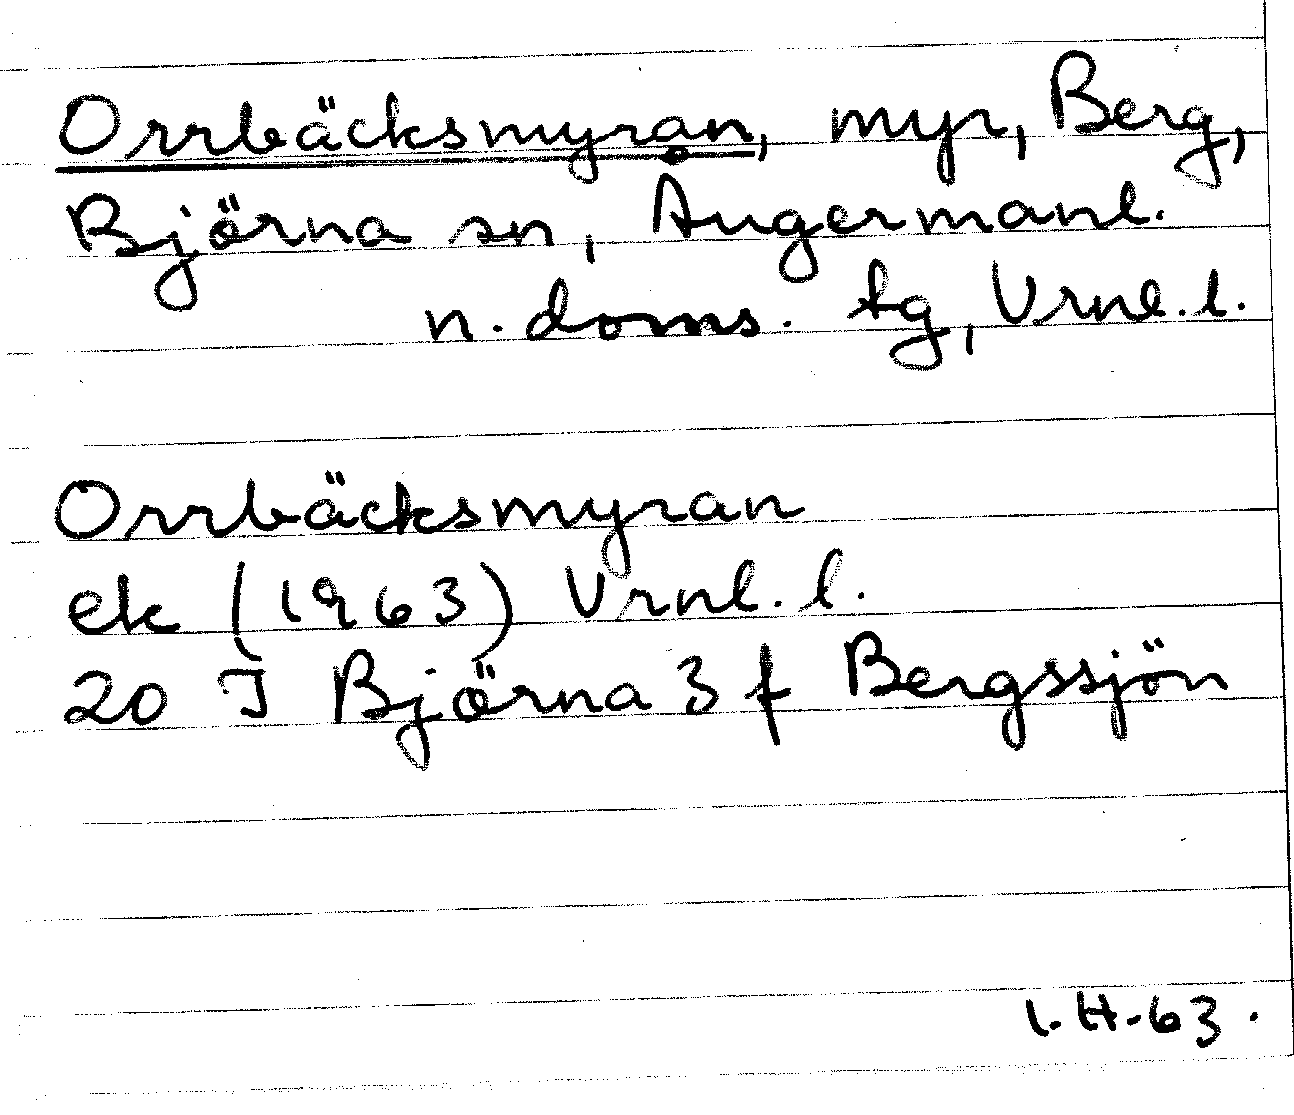 Orrbäcksmyran, myr, Berg,
Björna sn, Ångermanl.
n. doms. tg, Vrnl. l.
Orrbäcksmyran
ek (1963) Vrnl. l.
20 J Björna 3 f Bergssjön
I.H-63.